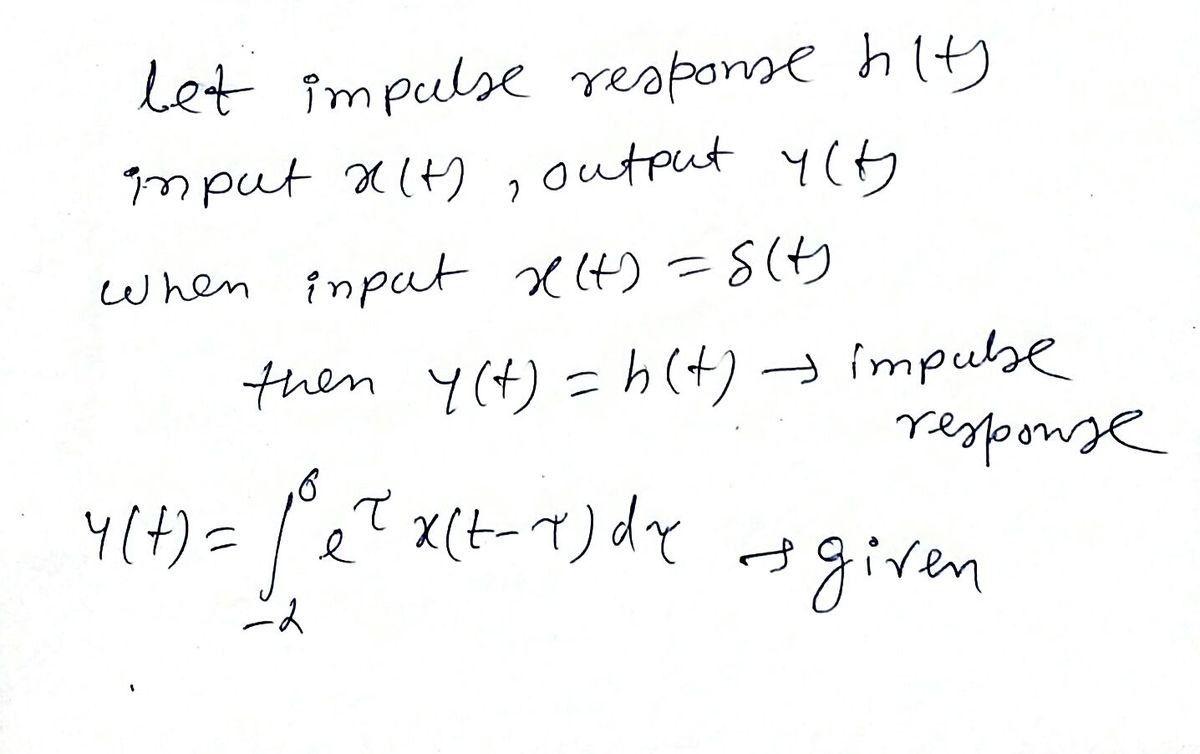 let impulse response h(t)
input x(t), output y(t)
when input x(t) = δ(t)
then y(t) = h(t) → impulse
response
y(t) = ∫_{-2}^{6} e^τ x(t-τ) dτ → given